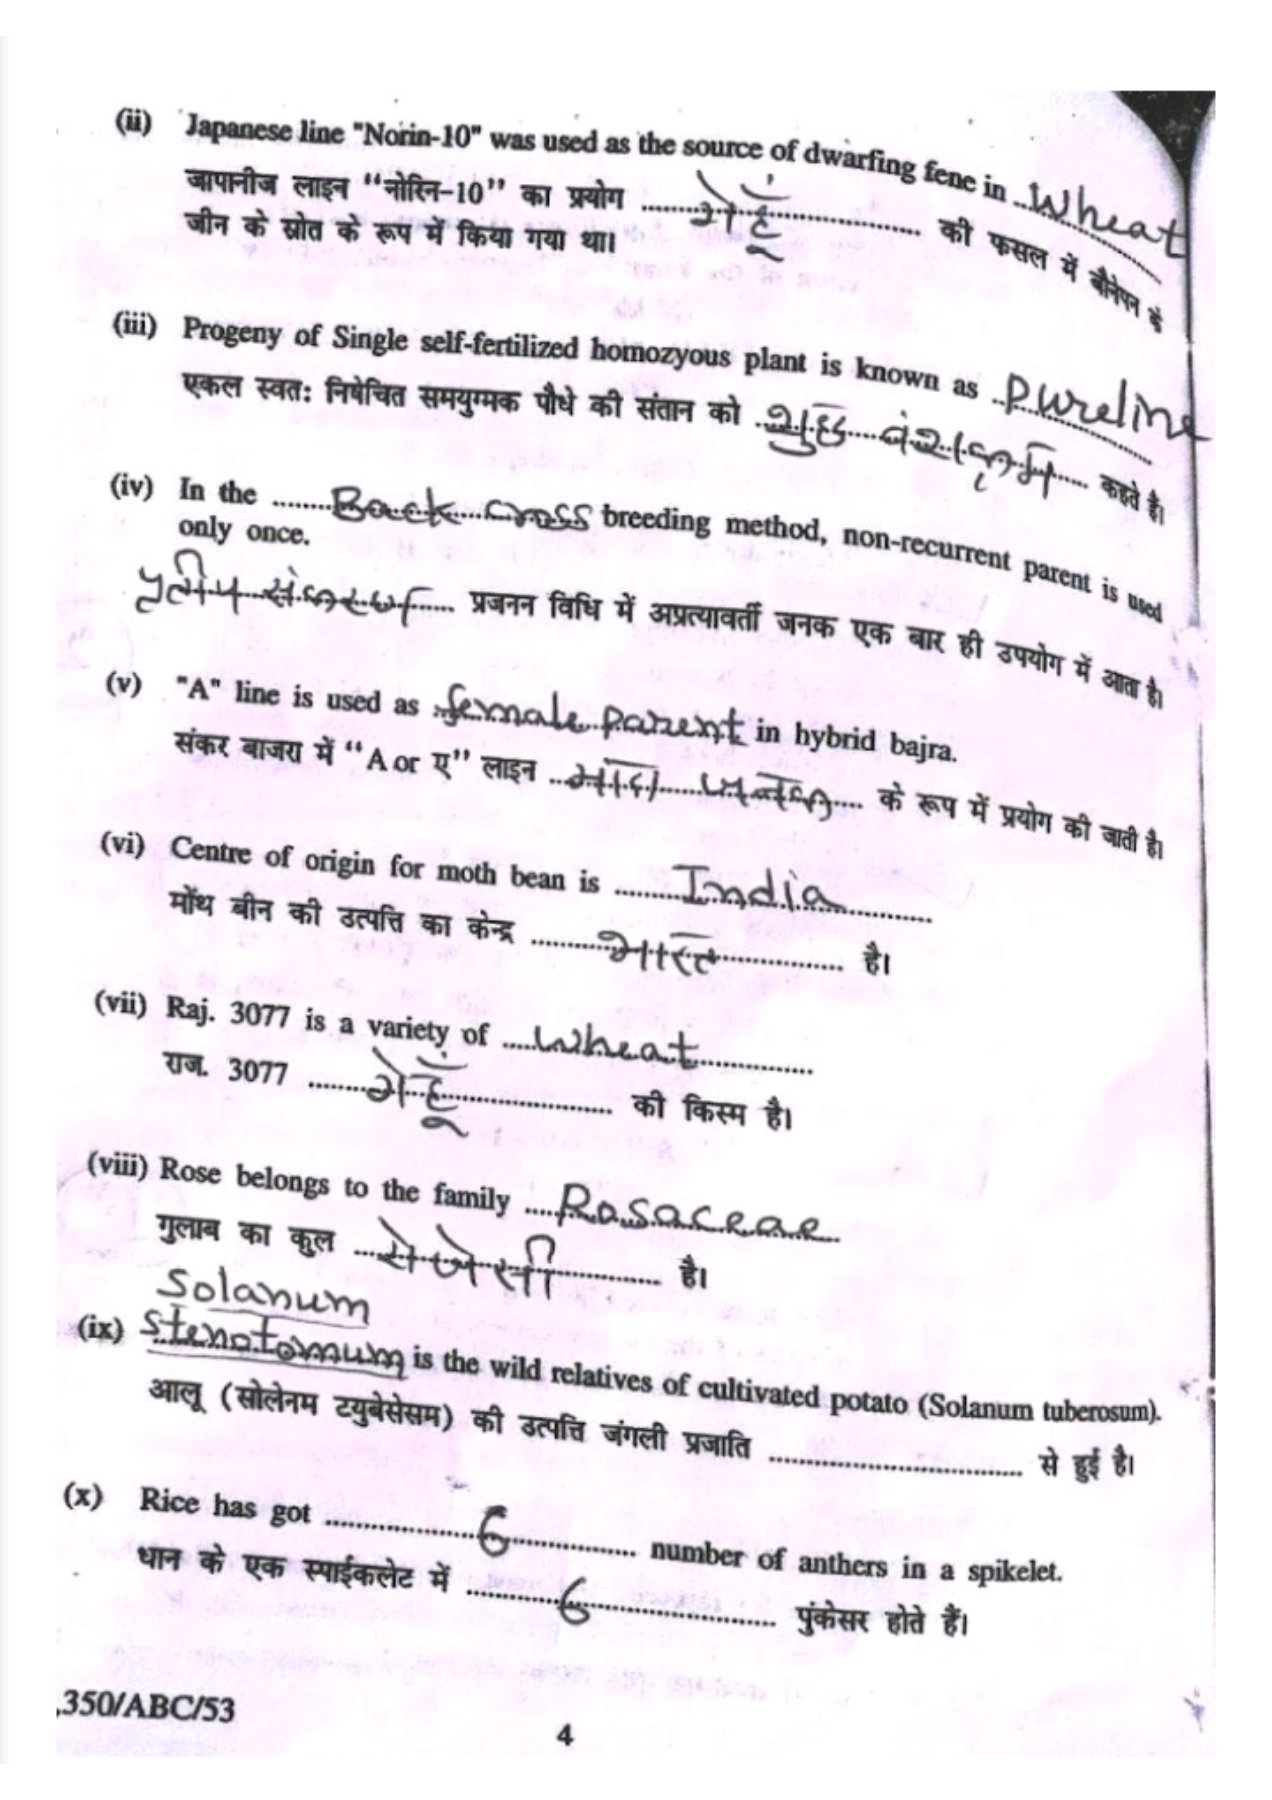 (ii) Japanese line "Norin-10" was used as the source of dwarfing fene in Wheat
जापानीज लाइन ‘‘नोरिन-10’’ का प्रयोग गेहूँ की फसल में बौनेपन के
जीन के स्रोत के रूप में किया गया था।
(iii) Progeny of Single self-fertilized homozyous plant is known as Pureline
एकल स्वतः निषेचित समयुग्मक पौधे की संतान को शुद्ध वंशक्रम कहते है।
(iv) In the Back cross breeding method, non-recurrent parent is used
only once.
प्रतीप संकरण प्रजनन विधि में अप्रत्यावर्ती जनक एक बार ही उपयोग में आता है।
(v) "A" line is used as female parent in hybrid bajra.
संकर बाजरा में ‘‘A or ए’’ लाइन मादा जनक के रूप में प्रयोग की जाती है।
(vi) Centre of origin for moth bean is India
मोंथ बीन की उत्पत्ति का केन्द्र भारत है।
(vii) Raj. 3077 is a variety of Wheat
राज. 3077 गेहूँ की किस्म है।
(viii) Rose belongs to the family Rosaceae
गुलाब का कुल रोजेसी है।
Solanum
(ix) Stenotomum is the wild relatives of cultivated potato (Solanum tuberosum).
आलू (सोलेनम टयुबेसेसम) की उत्पत्ति जंगली प्रजाति से हुई है।
(x) Rice has got 6 number of anthers in a spikelet.
धान के एक स्पाईकलेट में 6 पुंकेसर होते हैं।
.350/ABC/53
4